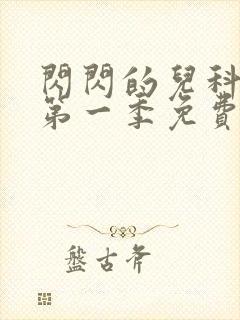 閃閃的兒科
第一季免費
盤古斧